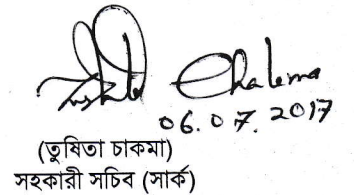 Tushita Chakma
06.07.2017
(তুষিতা চাকমা)
সহকারী সচিব (সার্ক)